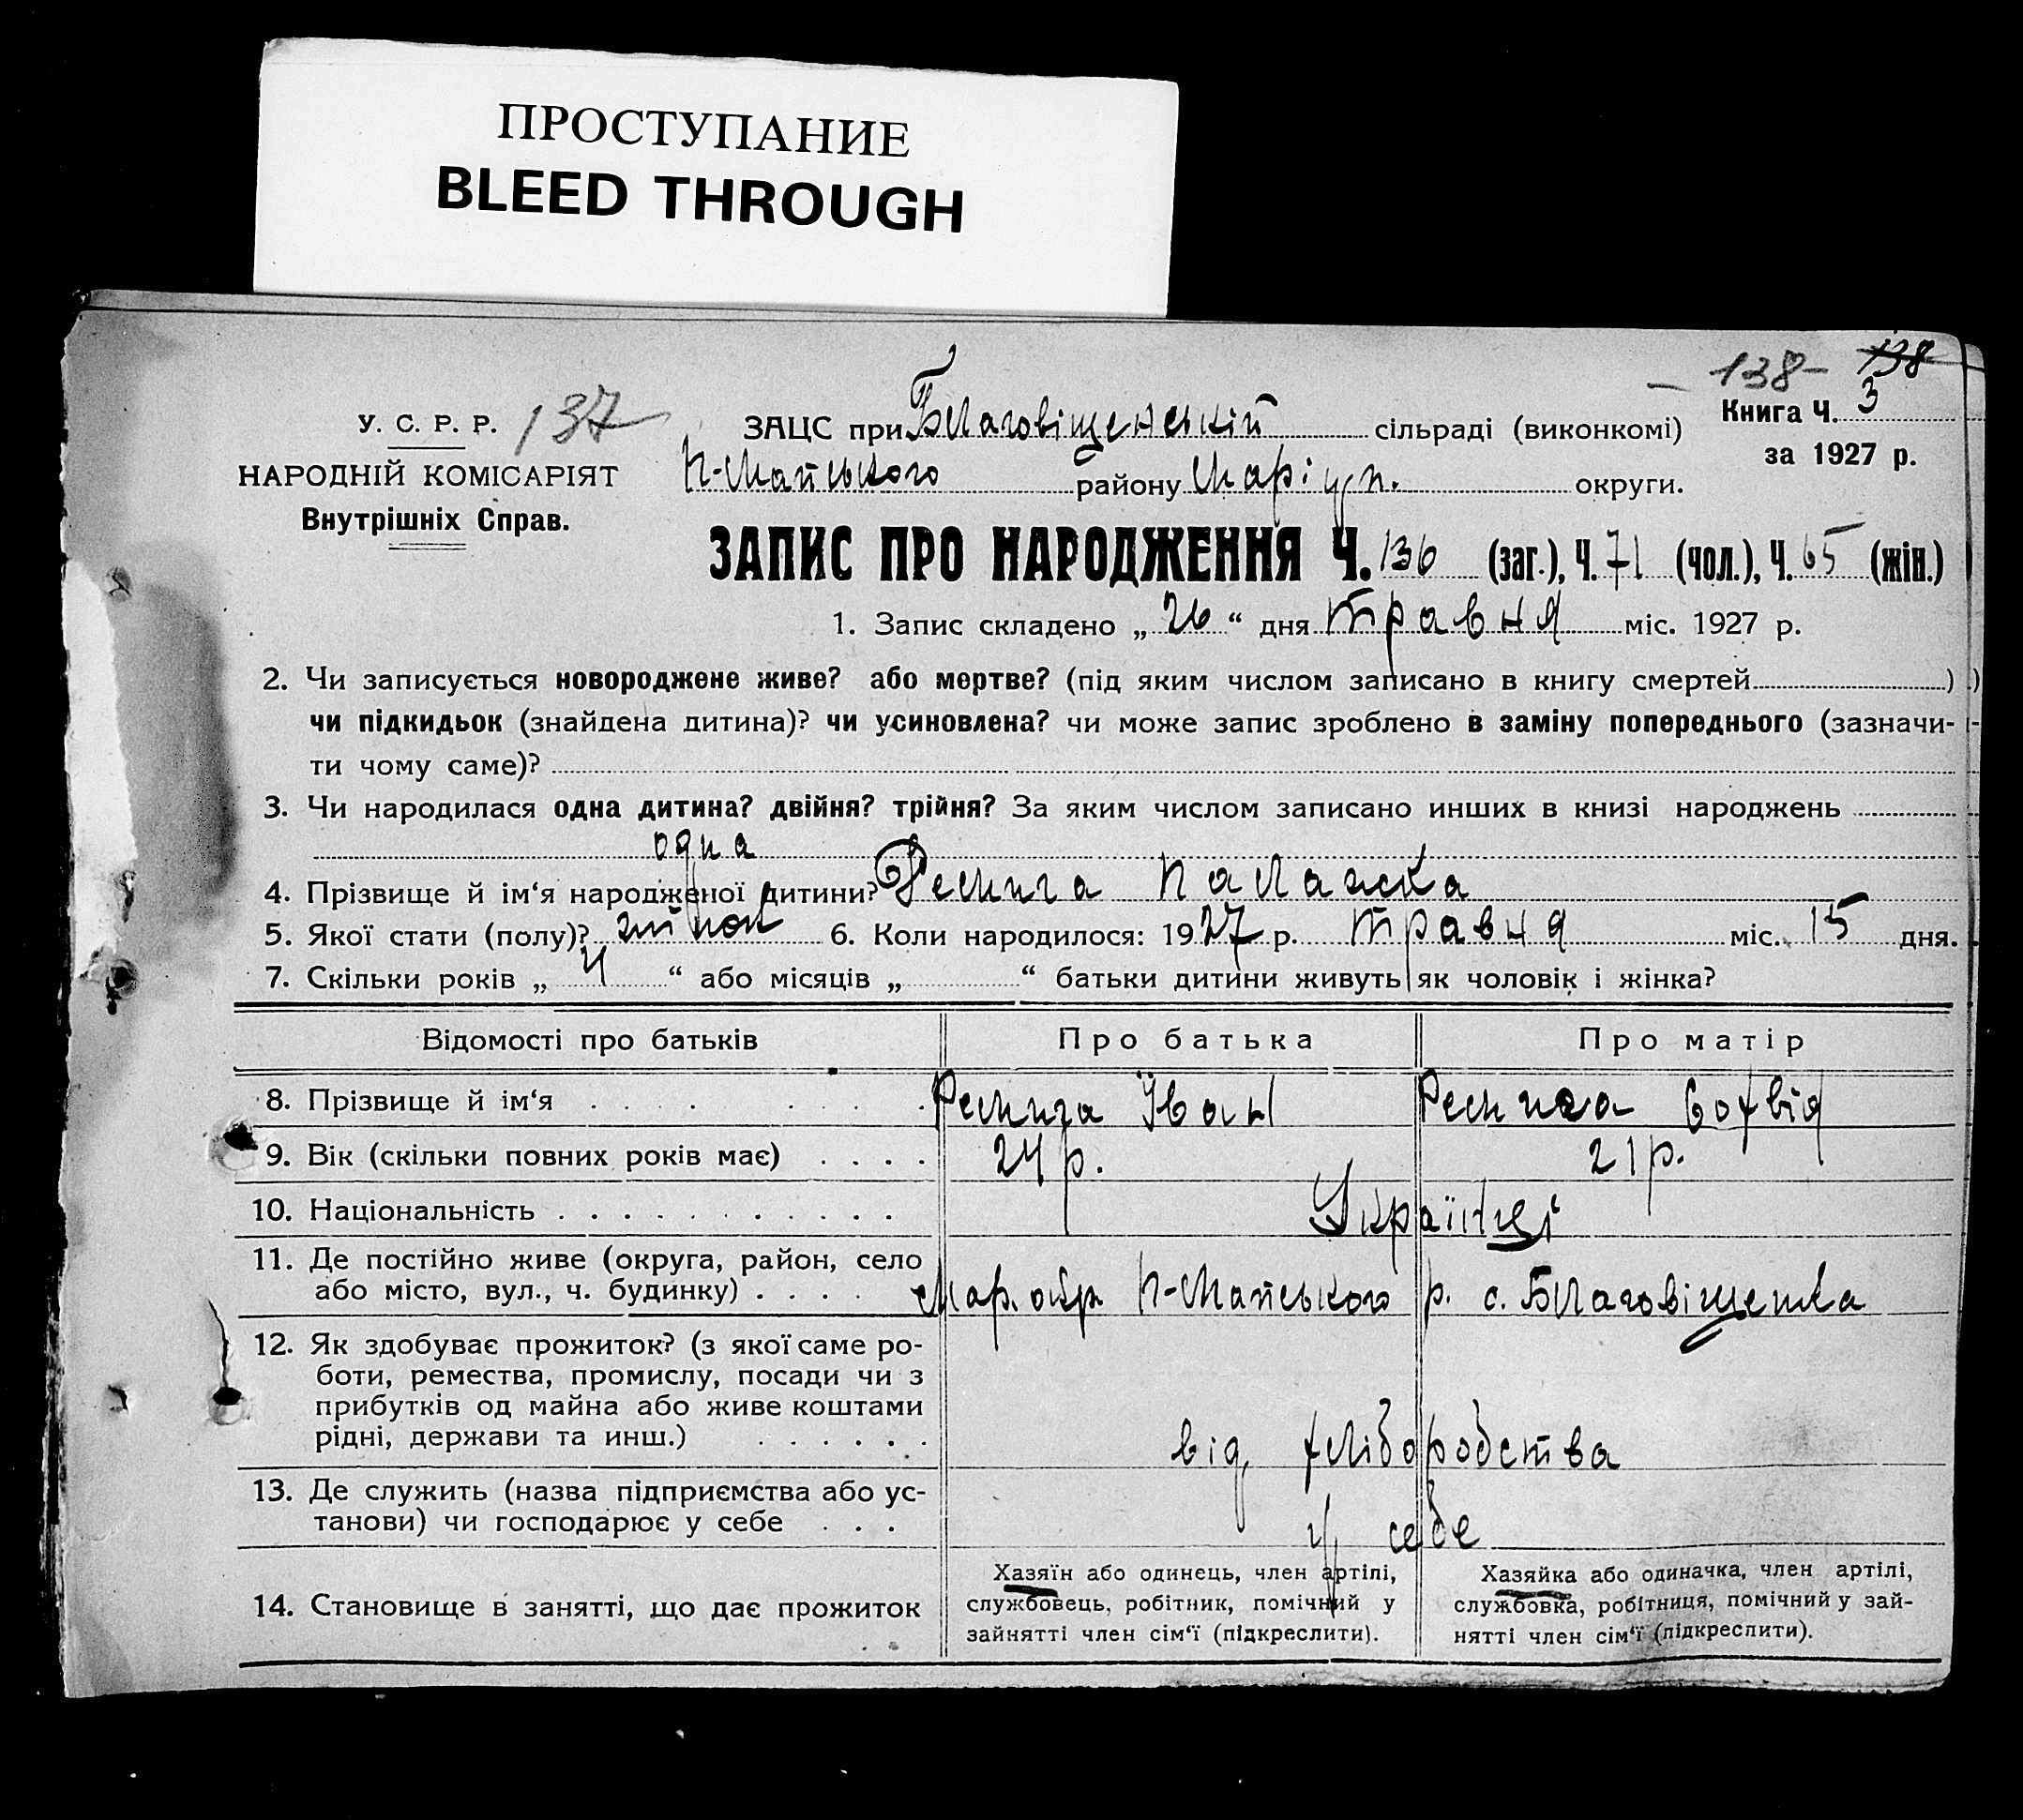 ПРОСТУПАНИЕ
BLEED THROUGH
138 138
У. С. Р. Р. 137 ЗАЦС при Благовіщенській сільраді (виконкомі) Книга Ч. 3
НАРОДНІЙ КОМІСАРІЯТ П-Майського району Маріуп. округи. за 1927 р.
Внутрішніх Справ.
ЗАПИС ПРО НАРОДЖЕННЯ Ч. 136 (заг.), Ч. 71 (чол.), Ч. 65 (жін.)
1. Запис складено „ 26 “ дня травня міс. 1927 р.
2. Чи записується новороджене живе? або мертве? (під яким числом записано в книгу смертей )
чи підкидьок (знайдена дитина)? чи усиновлена? чи може запис зроблено в заміну попереднього (зазначи-
ти чому саме)?
3. Чи народилася одна дитина? двійня? трійня? За яким числом записано инших в книзі народжень
одна
4. Прізвище й ім‘я народженої дитини? Палажка
5. Якої стати (полу)? 6. Коли народилося: 1927 р. травня міс. 15 дня.
7. Скільки років „ 4 “ або місяців „ “ батьки дитини живуть як чоловік і жінка?
Відомості про батьків Про батька Про матір
8. Прізвище й ім‘я Іван Софвія
9. Вік (скільки повних років має) 24 р. 21 р.
10. Національність Українці
11. Де постійно живе (округа, район, село
або місто, вул., ч. будинку) Мар. окр. П-Майського р. с. Благовіщенка
12. Як здобуває прожиток? (з якої саме ро-
боти, ремества, промислу, посади чи з
прибутків од майна або живе коштами
рідні, держави та инш.) від хліборобства
13. Де служить (назва підприємства або ус-
танови) чи господарює у себе у себе
14. Становище в занятті, що дає прожиток
Хазяїн або одинець, член артілі,
службовець, робітник, помічний у
зайнятті член сім‘ї (підкреслити).
Хазяйка або одиначка, член артілі,
службовка, робітниця, помічний у зай-
нятті член сім‘ї (підкреслити).